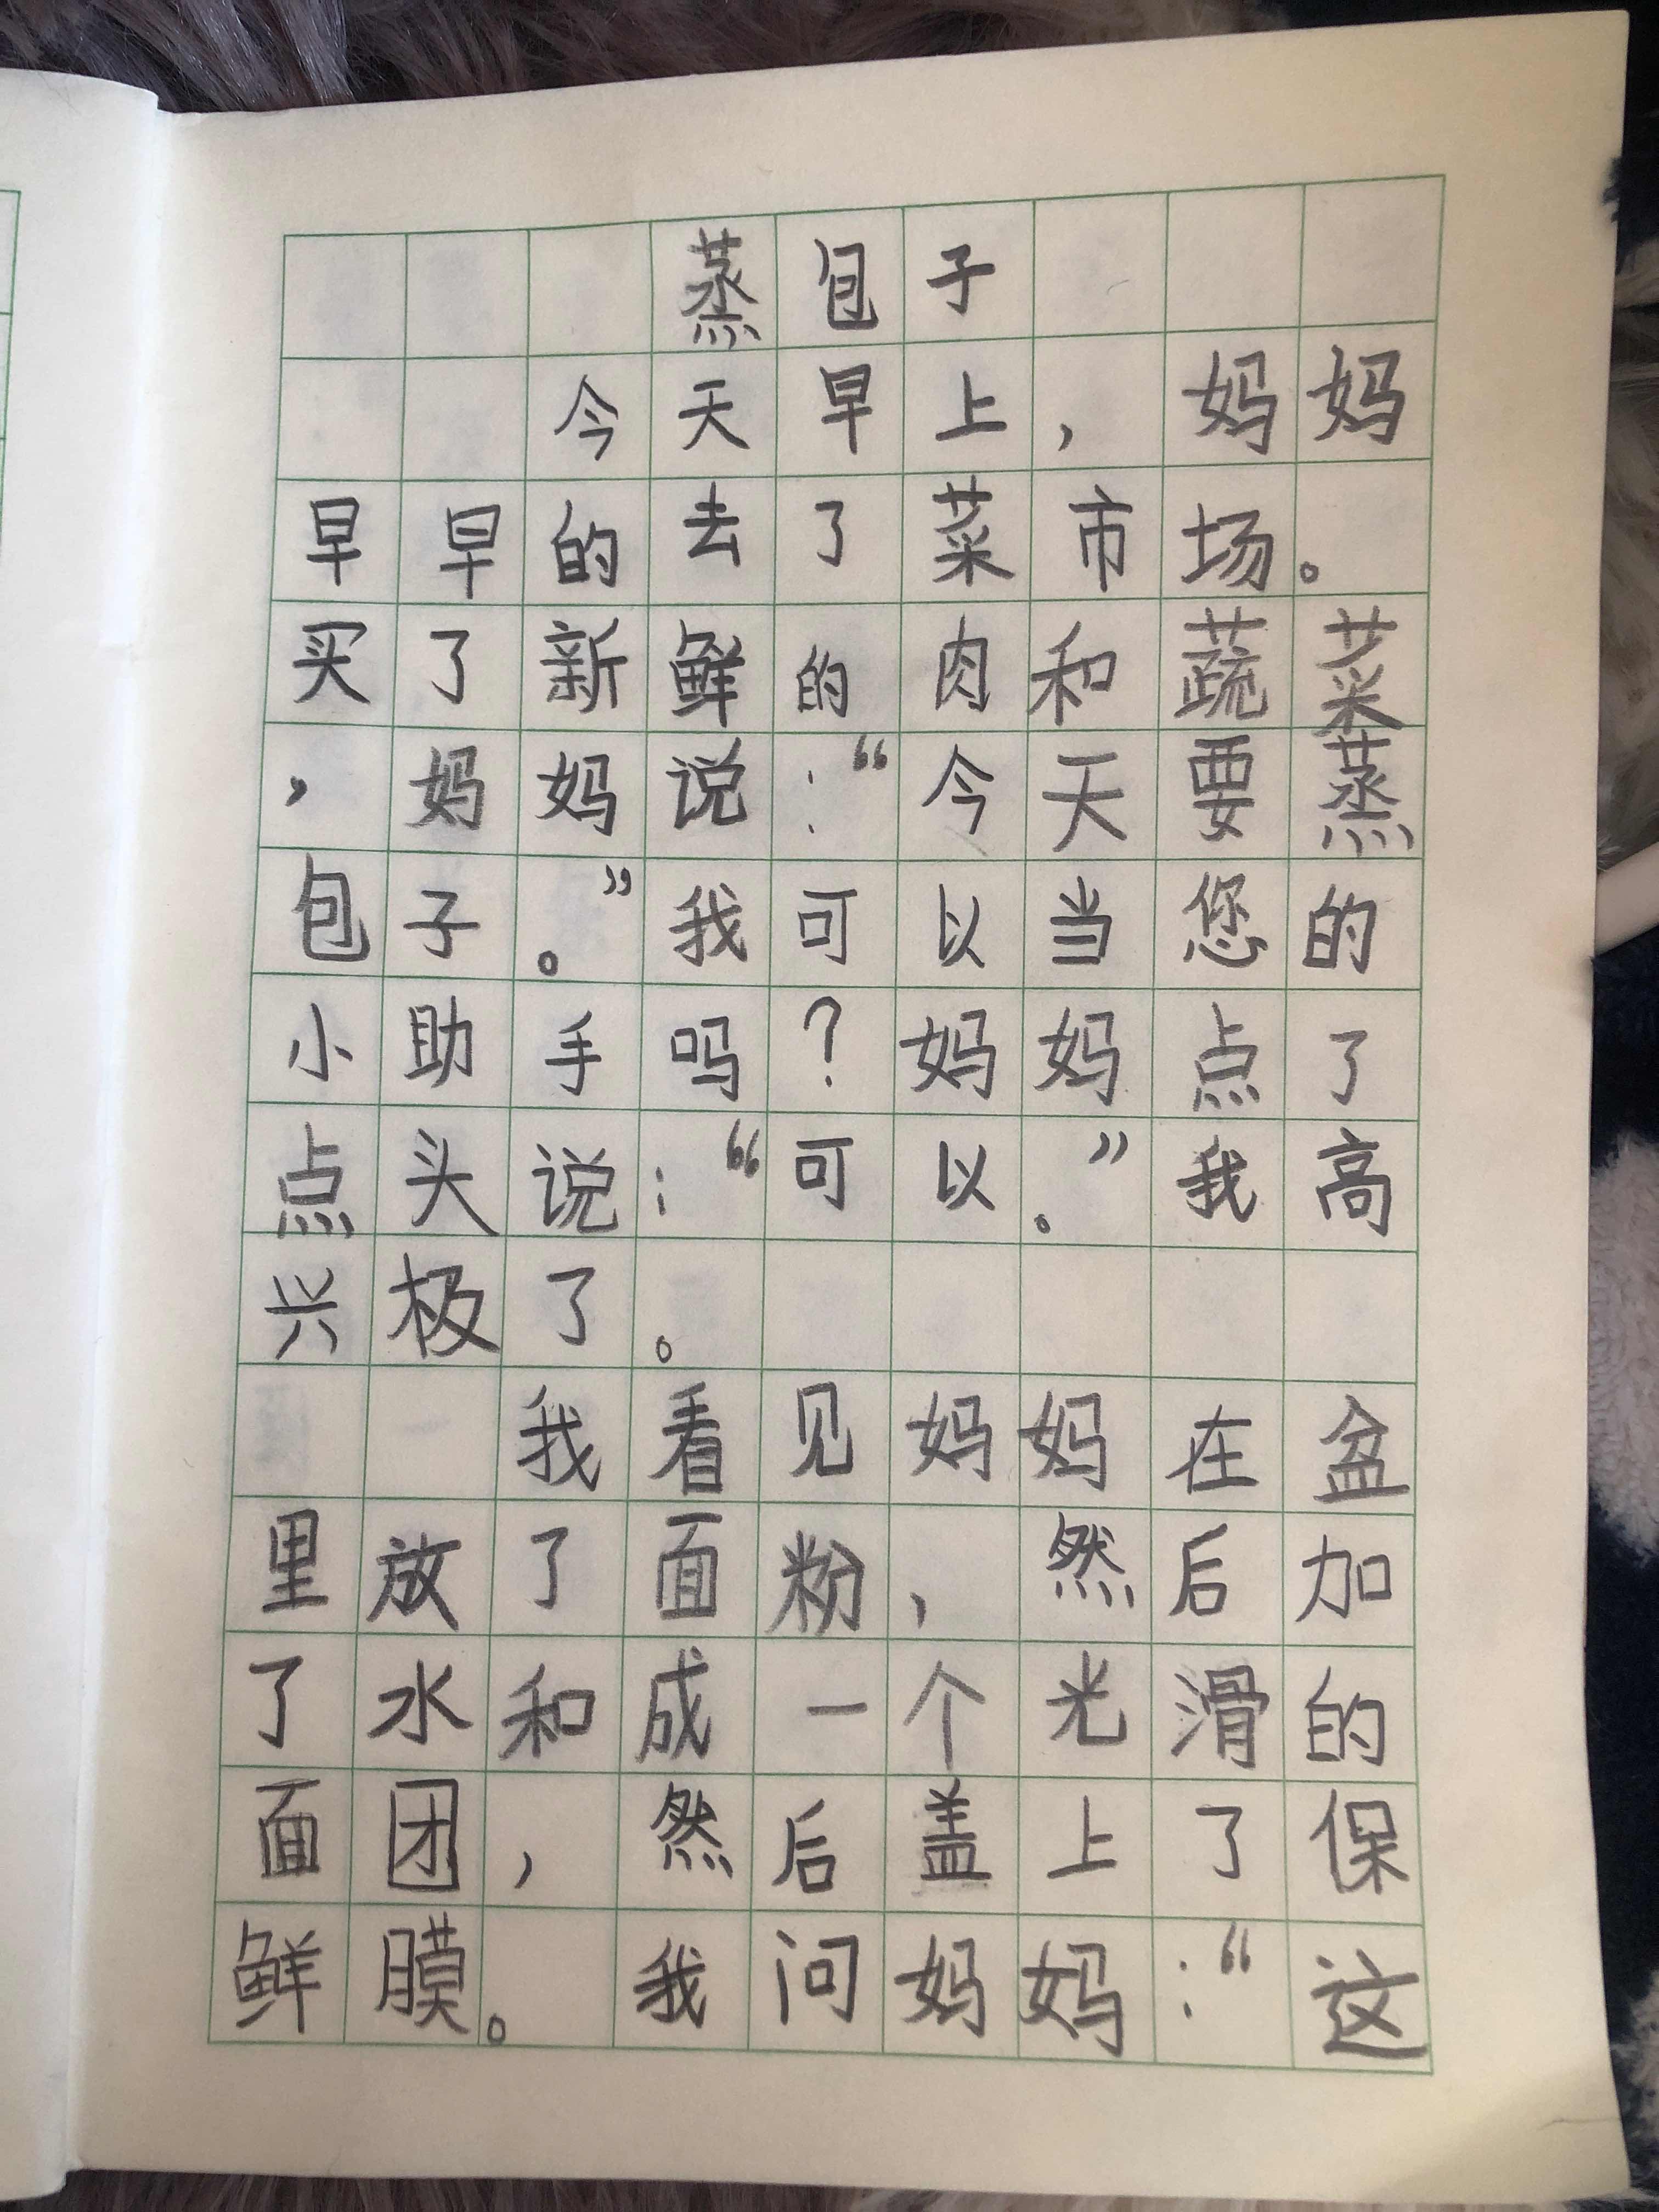 蒸包子
今天早上，妈妈
早早的去了菜市场。
买了新鲜的肉和蔬菜
，妈妈说：“今天要蒸
包子。”我可以当您的
小助手吗？妈妈点了
点头说：“可以。”我高
兴极了。
我看见妈妈在盆
里放了面粉，然后加
了水和成一个光滑的
面团，然后盖上了保
鲜膜。我问妈妈：“这